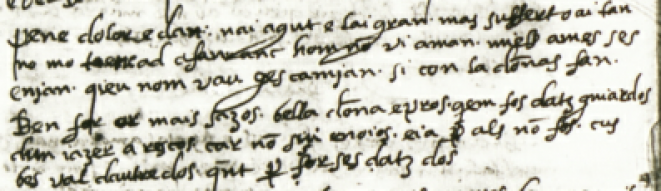 Pene dolor e dan. nai agut e lai gran. mas suffert o ai tan
no mo ad afan anc hom nō vi aman. miels ames ses
enian. qieu nom vau ges camjan. si con la dōnas fan.
Ben for or mais sazos. bella dōna e pros. qem fos datz guiardos
dun iazer a rscos. car nō sui enoios. e ia ꝑ als nō fos. cus
bes val dautre dos. qānt ꝑ forses datz dos